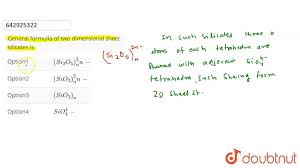 642925322
General formulla of two dimensional sheet silicates is
Option1 (Si₂O₅)ₙ²ⁿ−
Option2 (SiO₃)ₙ²ⁿ−
Option3 (SiO₂)ₙ
Option4 SiO₄⁴−
(Si₂O₅)ₙ²ⁿ⁻
In such silicates three O
atoms of each tetrahedra are
shared with adjacent SiO₄⁴⁻
tetrahedra, such sharing form
2D sheet st.
doubtnut